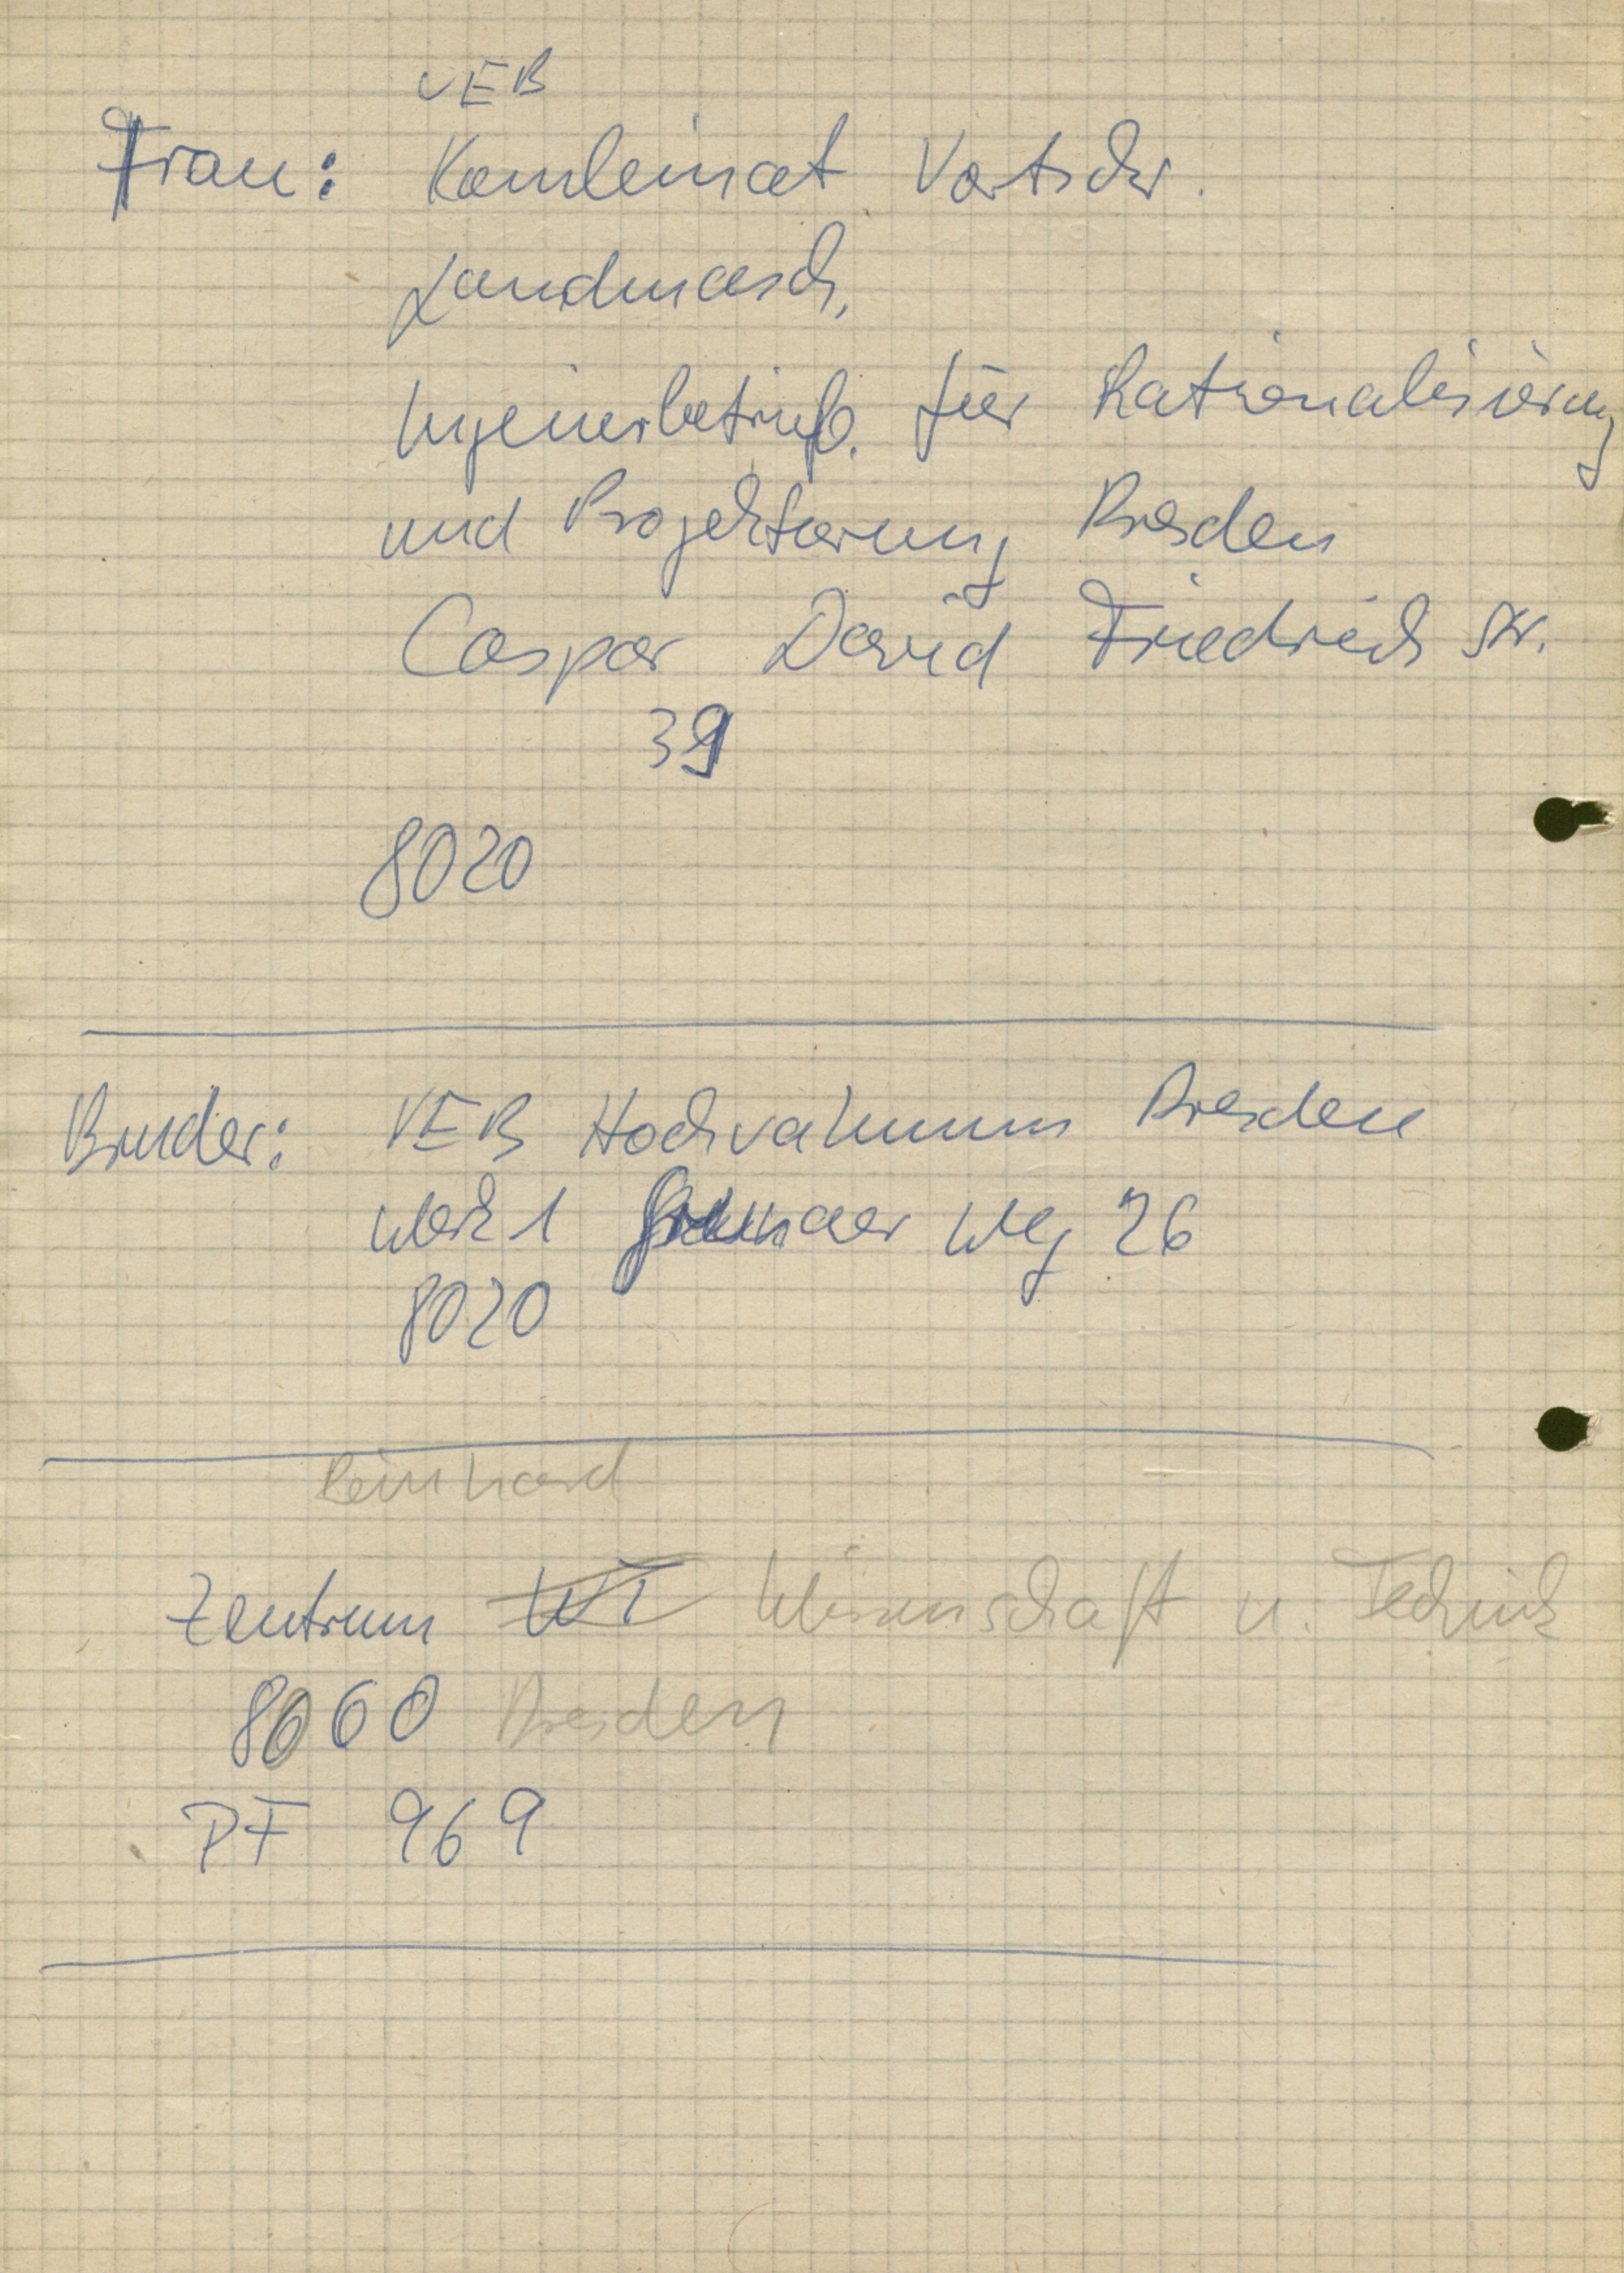 VEB
Frau: Kombinat Vortschr.
Landmasch.
Ingenierbetrieb. für Rationalisierung
und Projektierung Dresden
Caspar David Friedrich Str.
39
8020
Bruder: VEB Hochvakuum Dresden
Werk 1 Grunaer Weg 26
8020
Reinhard
Zentrum WT Wissenschaft u. Technik
8060 Dresden
PF 969